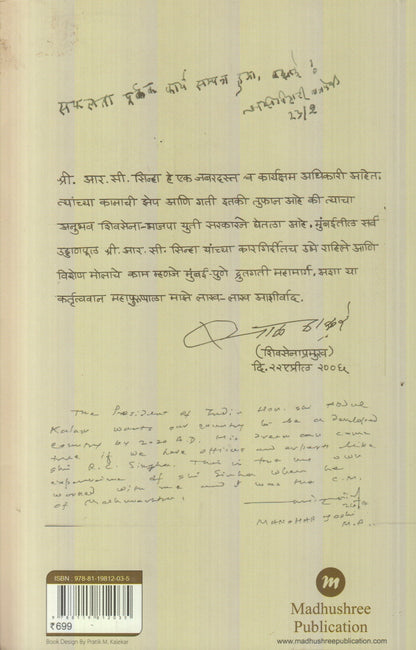 सफलता पूर्वक कार्य सम्पन्न हुआ, बधाई !
अटल बिहारी वाजपेयी
23/2
श्री. आर. सी. सिन्हा हे एक जबरदस्त व कार्यक्षम अधिकारी आहेत.
त्यांच्या कामाची झेप आणि गती इतकी तुफान आहे की त्याचा
अनुभव शिवसेना-भाजपा युती सरकारने घेतला आहे. मुंबईतील सर्व
उड्डाणपूल श्री. आर. सी. सिन्हा यांच्या कारगिर्दीतच उभे राहिले आणि
विशेष मोलाचे काम म्हणजे मुंबई-पुणे द्रुतगती महामार्ग. अशा या
कर्तृत्ववान महापुरुषाला माझे लाख-लाख आशीर्वाद.
बाळ ठाकरे
(शिवसेनाप्रमुख)
दि. २२ एप्रील २००६
The President of India Hon. Shri Abdul
Kalam wants our country to be a developed
country by 2020 A.D. His dream can come
true if we have officers and artists like
Shri R.C. Sinha. This is true our own
experience of Shri Sinha when he
worked with me and I was the C.M.
of Maharashtra.
MANOHAR JOSHI
M.P.
ISBN : 978-81-19812-03-5
9 788119 812035
₹699
Book Design By Pratik M. Kalekar
m
Madhushree
Publication
www.madhushreepublication.com